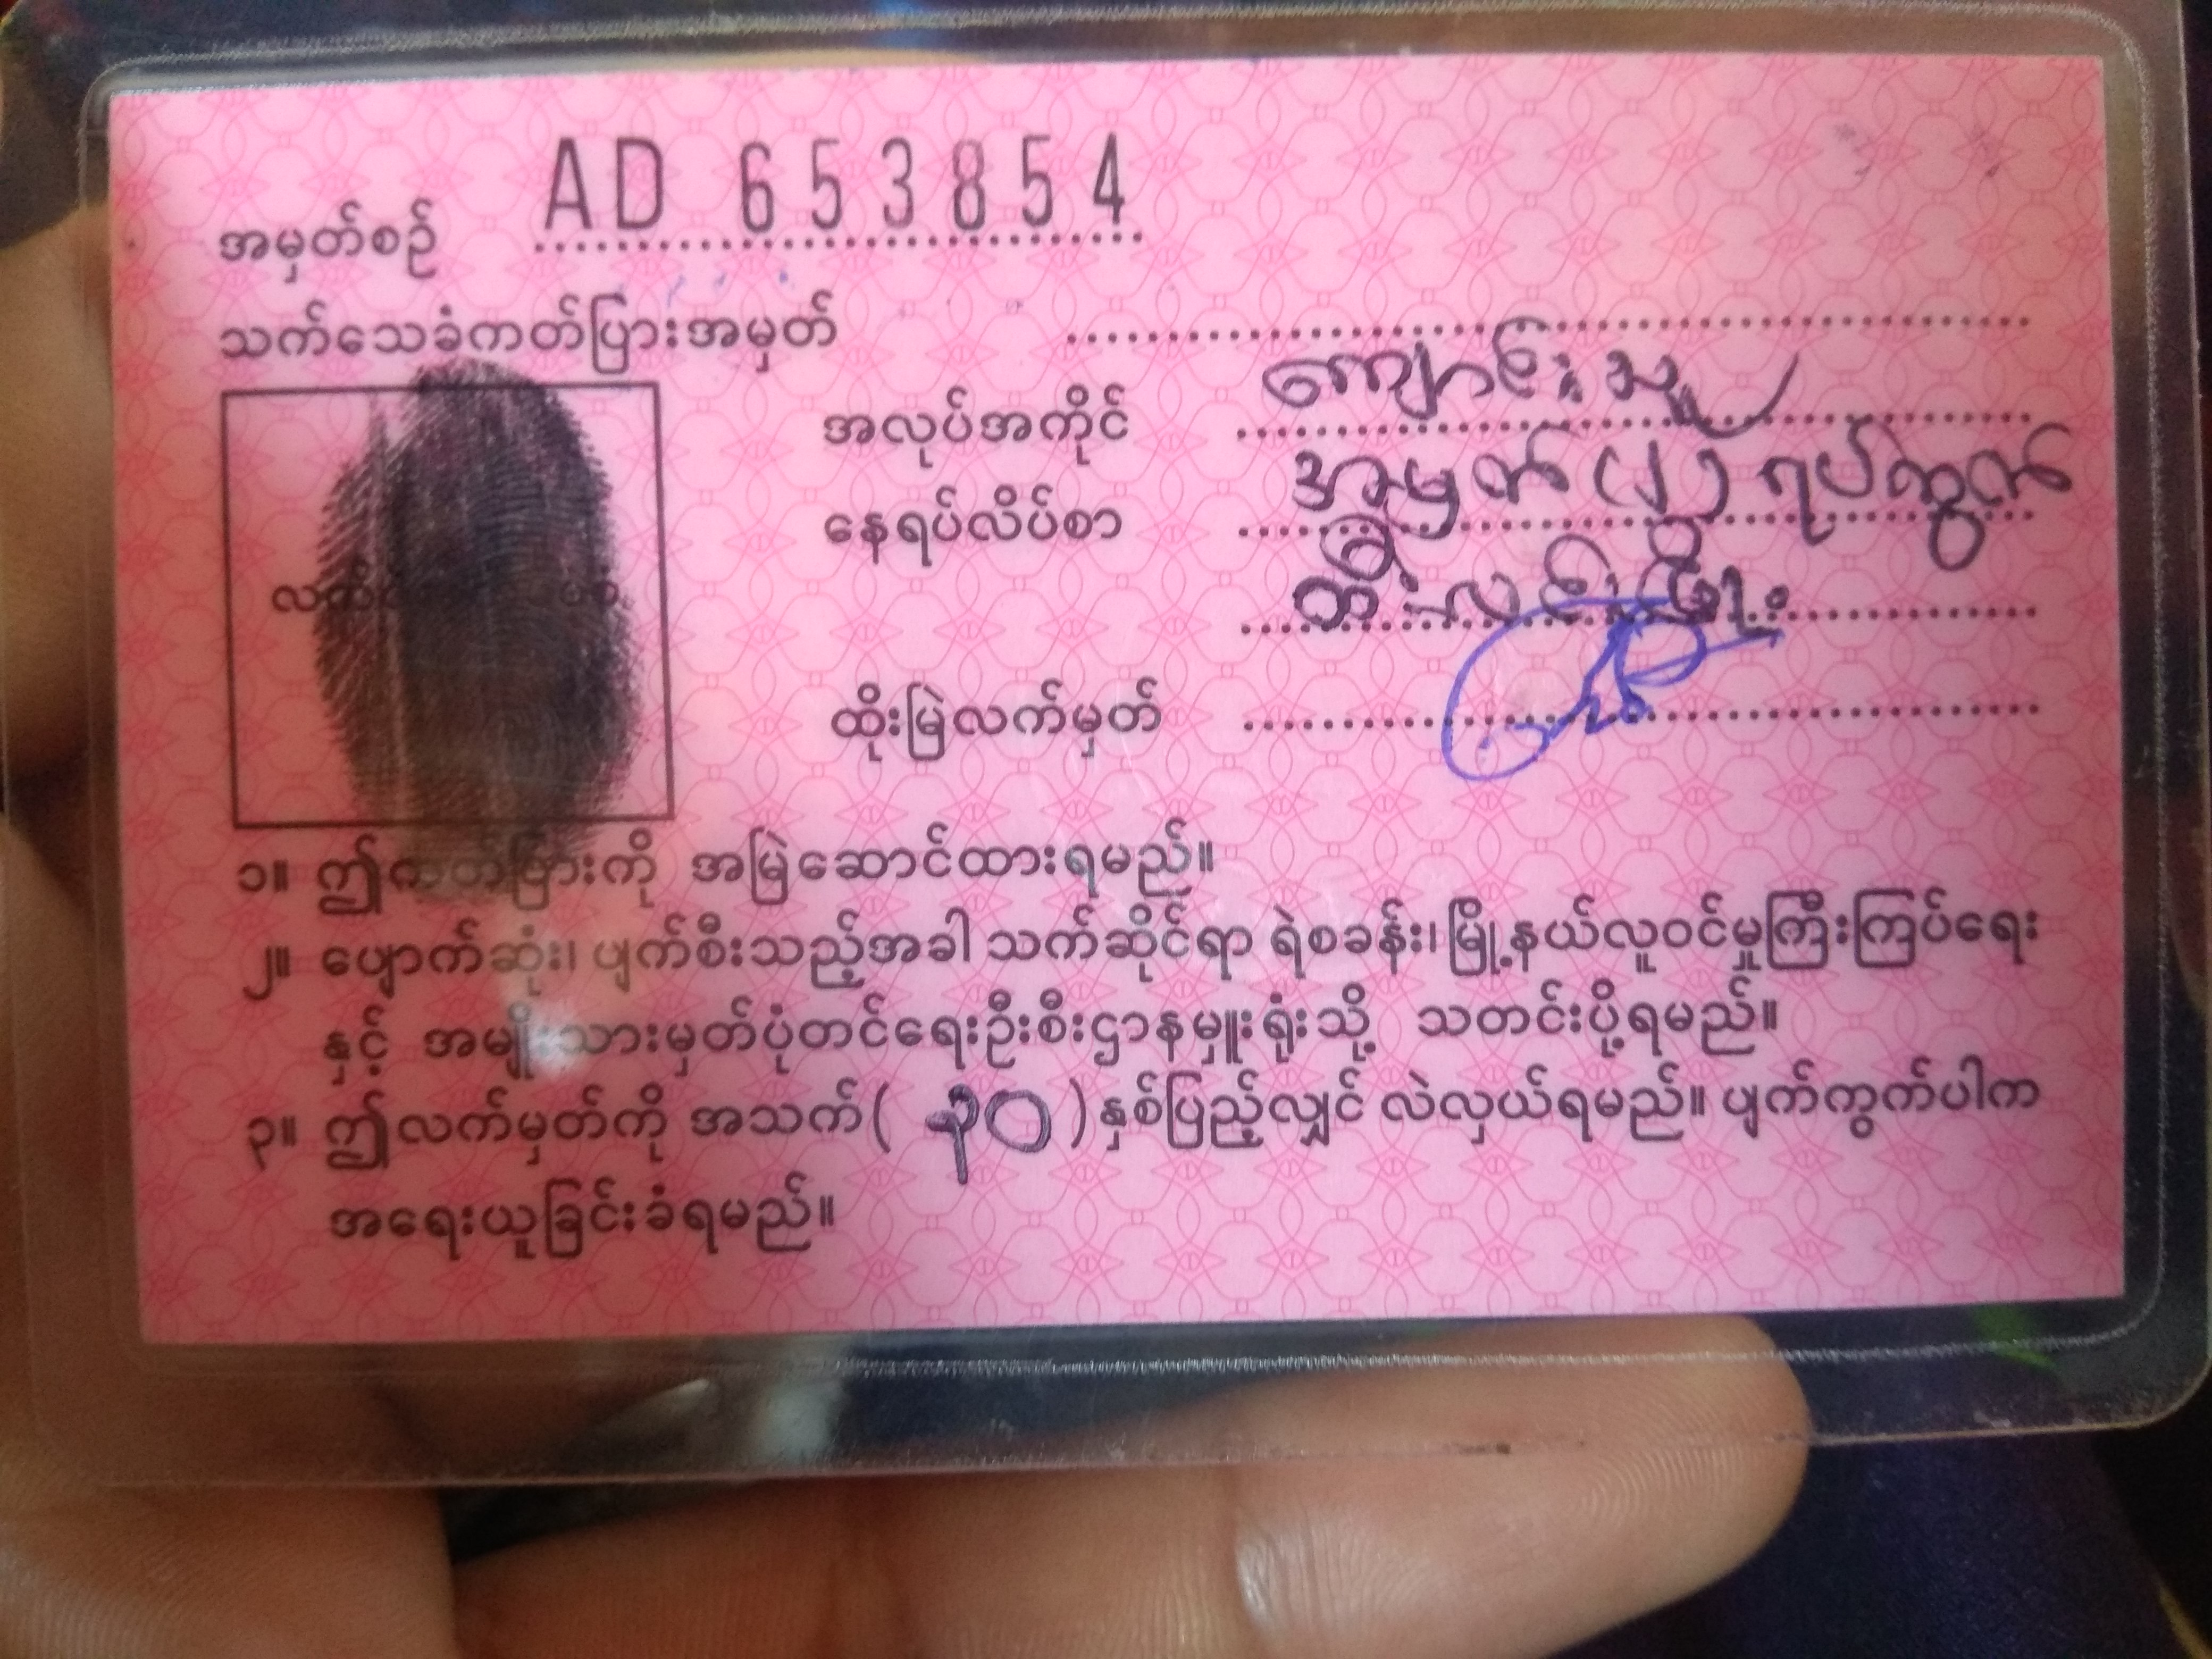 အမှတ်စဉ် AD 653854
သက်သေခံကတ်ပြားအမှတ်
အလုပ်အကိုင် ကျောင်းသူ
နေရပ်လိပ်စာ အမှတ် (၂) ရပ်ကွက်
ထိုးမြဲလက်မှတ်
၁။ ဤကတ်ပြားကို အမြဲဆောင်ထားရမည်။
၂။ ပျောက်ဆုံး၊ ပျက်စီးသည့်အခါ သက်ဆိုင်ရာ ရဲစခန်း၊ မြို့နယ်လူဝင်မှုကြီးကြပ်ရေး
နှင့် အမျိုးသားမှတ်ပုံတင်ရေးဦးစီးဌာနမှူးရုံးသို့ သတင်းပို့ရမည်။
၃။ ဤလက်မှတ်ကို အသက် ( ၃၀ ) နှစ်ပြည့်လျှင် လဲလှယ်ရမည်။ ပျက်ကွက်ပါက
အရေးယူခြင်းခံရမည်။